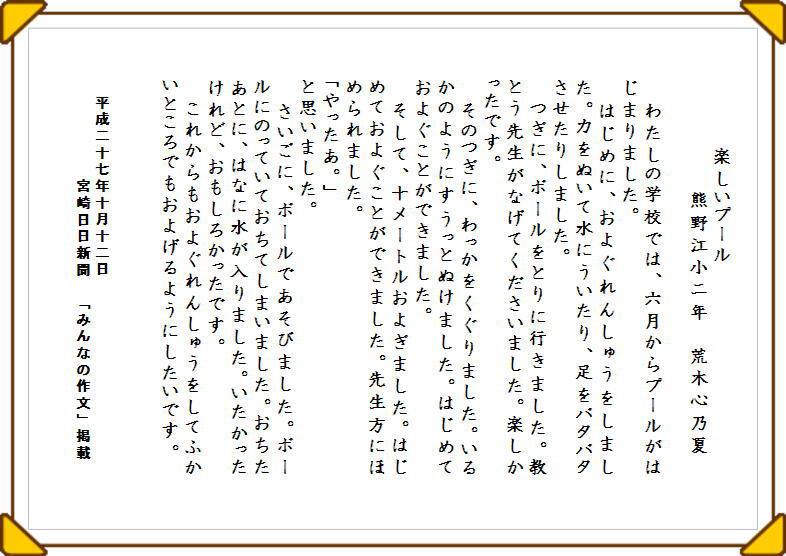 楽しいプール
熊野江小二年　荒木心乃夏
わたしの学校では、六月からプールがは
じまりました。
はじめに、およぐれんしゅうをしまし
た。力をぬいて水にういたり、足をバタバタ
させたりしました。
つぎに、ボールをとりに行きました。教
とう先生がなげてくださいました。楽しか
ったです。
そのつぎに、わっかをくぐりました。いる
かのようにすうっとぬけました。はじめて
およぐことができました。
そして、十メートルおよぎました。はじ
めておよぐことができました。先生方にほ
められました。
「やったあ。」
と思いました。
さいごに、ボールであそびました。ボー
ルにのっていておちてしまいました。おちた
あとに、はなに水が入りました。いたかった
けれど、おもしろかったです。
これからもおよぐれんしゅうをしてふか
いところでもおよげるようにしたいです。
平成二十七年十月十二日
宮崎日日新聞　「みんなの作文」掲載